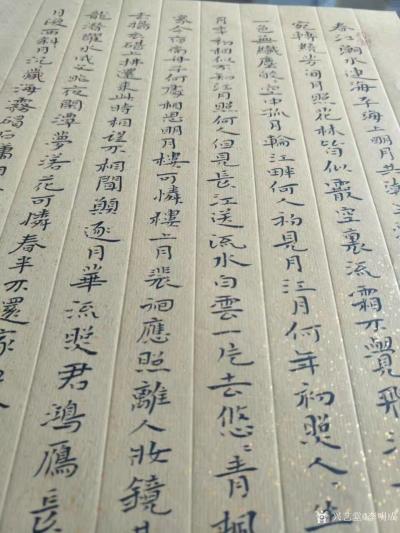 春江潮水連海平海上明月共潮生
宛轉繞芳甸月照花林皆似霰空裏流霜不覺飛汀
一色無纖塵皎空中孤月輪江畔何人初見月江月何年初照人人生
月年初相似不知江月照何人但見長江送流水白雲一片去悠〻青楓
家今宿扁舟子何處相思明月樓可憐樓上月裴徊應照離人妝鏡
去擣衣碪上拂還來此時相望不相聞願逐月華流照君鴻雁長
龍潛躍水成文昨夜閒潭夢落花可憐春半不還家
月復西斜月沉藏海霧碣石瀟湘
兴艺堂@李明成